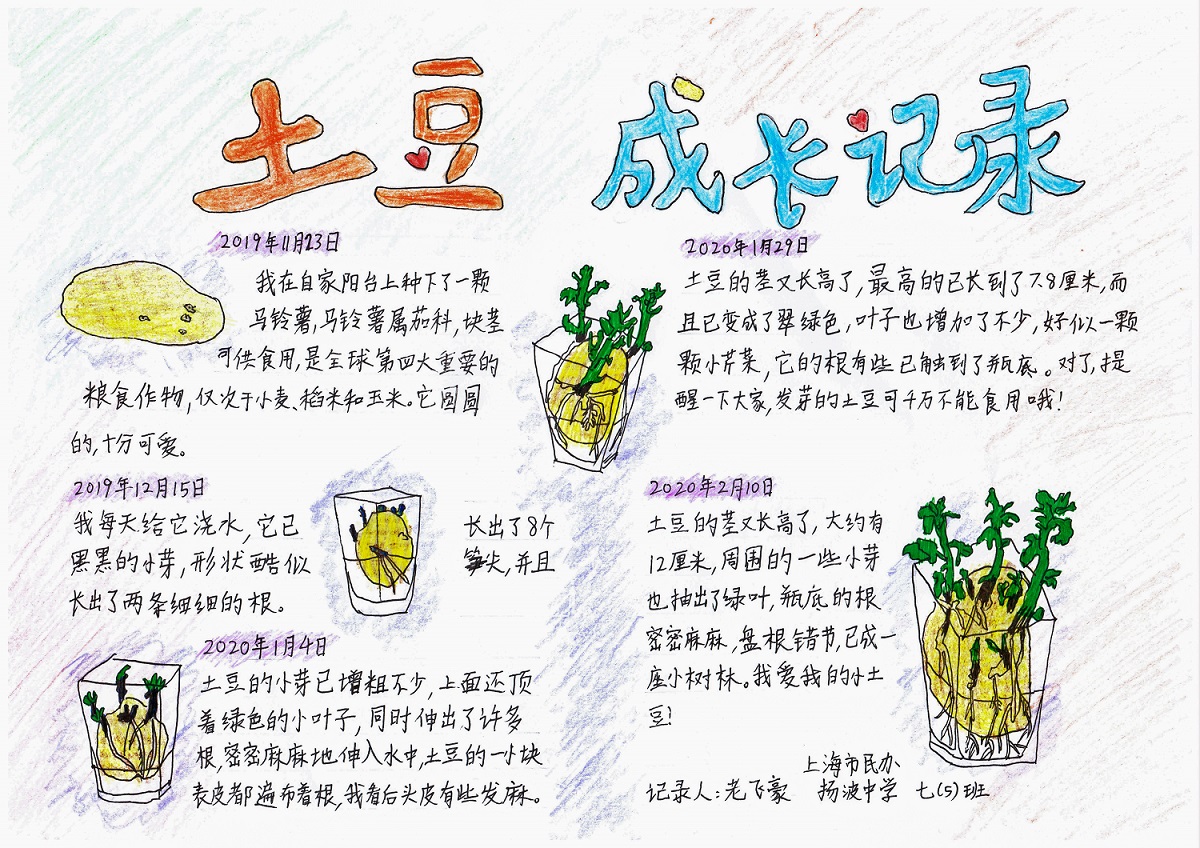 土豆 成长记录
2019年11月23日
我在自家阳台上种下了一颗
马铃薯,马铃薯属茄科,块茎
可供食用,是全球第四大重要的
粮食作物,仅次于小麦、稻米和玉米。它圆圆
的,十分可爱。
2019年12月15日
我每天给它浇水,它已 长出了8个
黑黑的小芽,形状酷似 笋尖,并且
长出了两条细细的根。
2020年1月4日
土豆的小芽已增粗不少,上面还顶
着绿色的小叶子,同时伸出了许多
根,密密麻麻地伸入水中,土豆的一小块
表皮都遍布着根,我看后头皮有些发麻。
2020年1月29日
土豆的茎又长高了,最高的已长到了7.8厘米,而
且已变成了翠绿色,叶子也增加了不少,好似一颗
颗小芹菜,它的根有些已触到了瓶底。对了,提
醒一下大家,发芽的土豆可千万不能食用哦!
2020年2月10日
土豆的茎又长高了,大约有
12厘米,周围的一些小芽
也抽出了绿叶,瓶底的根
密密麻麻,盘根错节,已成一
座小树林。我爱我的小土
豆!
上海市民办
记录人:老飞豪 扬波中学 七(5)班